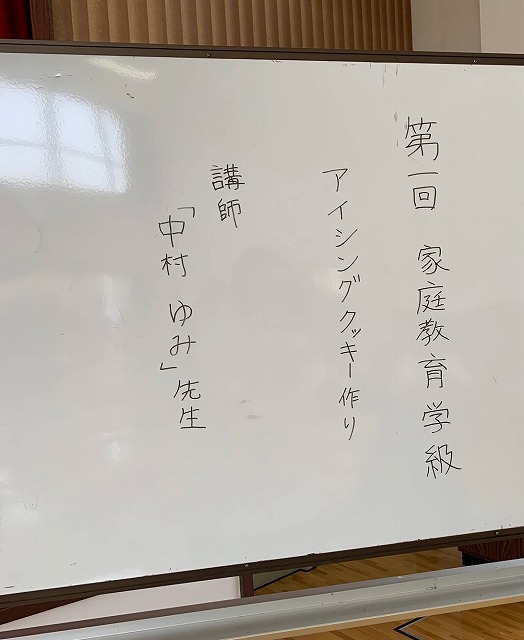 第一回 家庭教育学級
アイシングクッキー作り
講師
「中村 ゆみ」先生